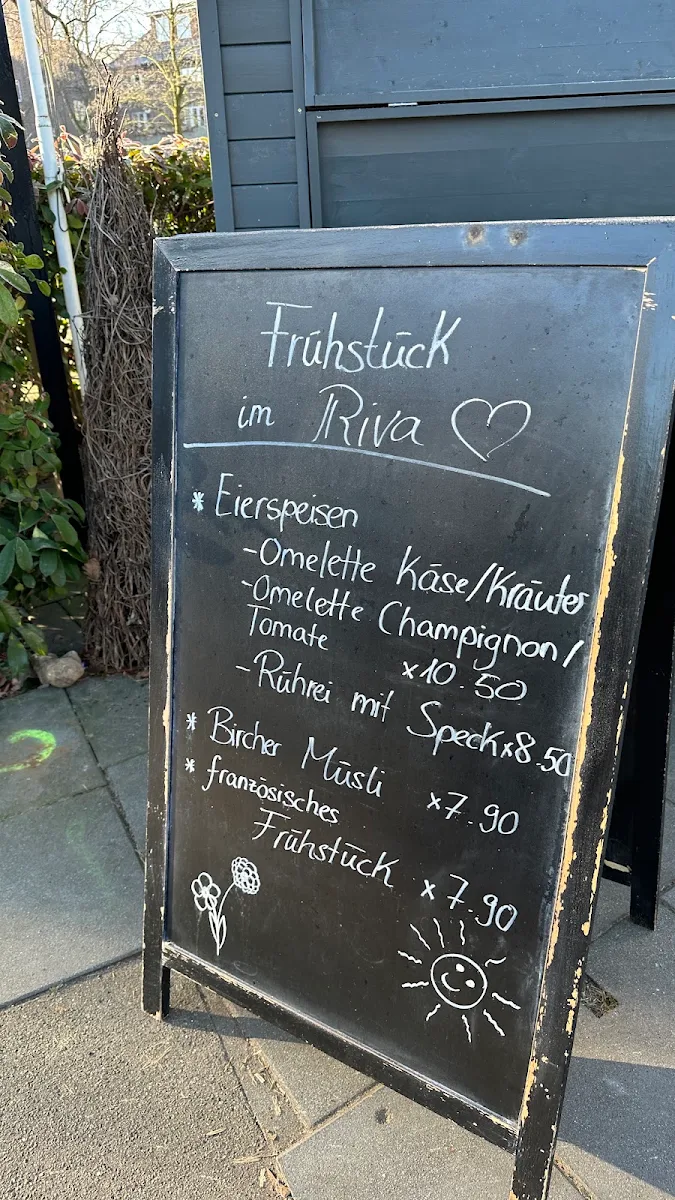 Frühstück
im Riva
* Eierspeisen
-Omelette Käse/Kräuter
-Omelette Champignon/
Tomate x10.50
-Rührei mit Speck x8.50
* Bircher Müsli x7.90
* französisches
Frühstück x7.90